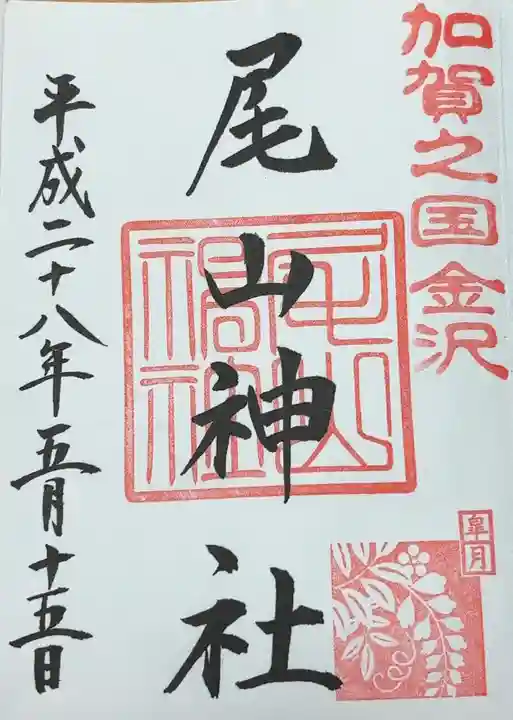 加賀之国金沢
皐月
尾山神社
平成二十八年五月十五日